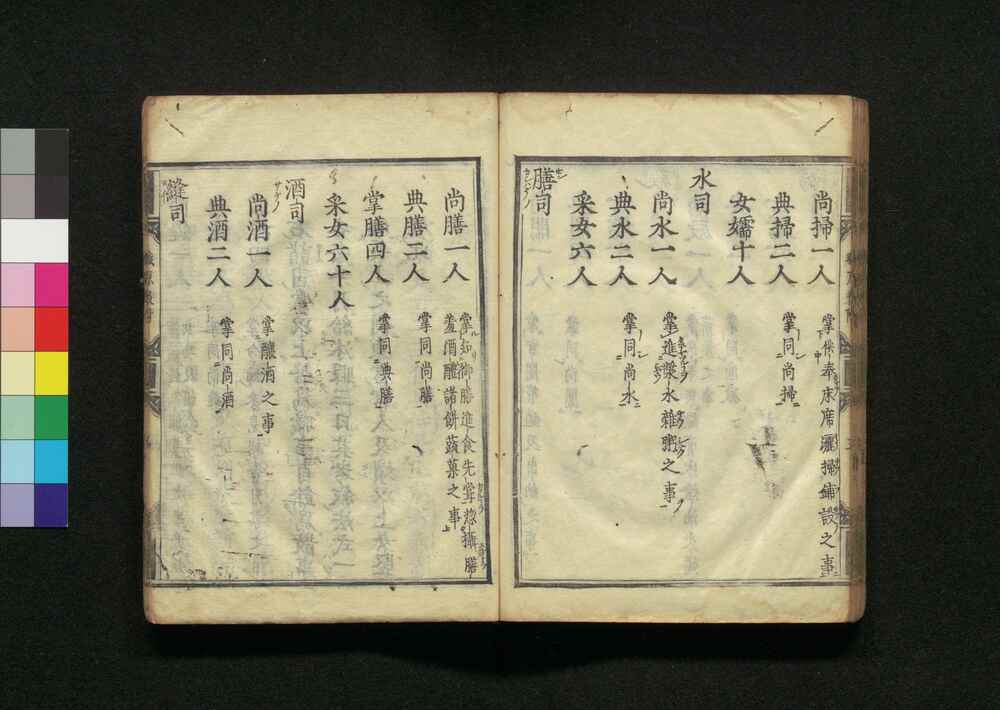 尚掃一人
掌供奉床席灑掃鋪設之事
典掃二人
掌同尚掃
女孺十人
水司
尚水一人
掌進漿水雜粥之事
典水二人
掌同尚水
采女六人
膳司
尚膳一人
掌知御膳進食先掌惣攝膳
羞酒醴諸餅蔬菓之事
典膳二人
掌同尚膳
掌膳四人
掌同典膳
采女六十人
酒司
尚酒一人
掌釀酒之事
典酒二人
掌同尚酒
縫司